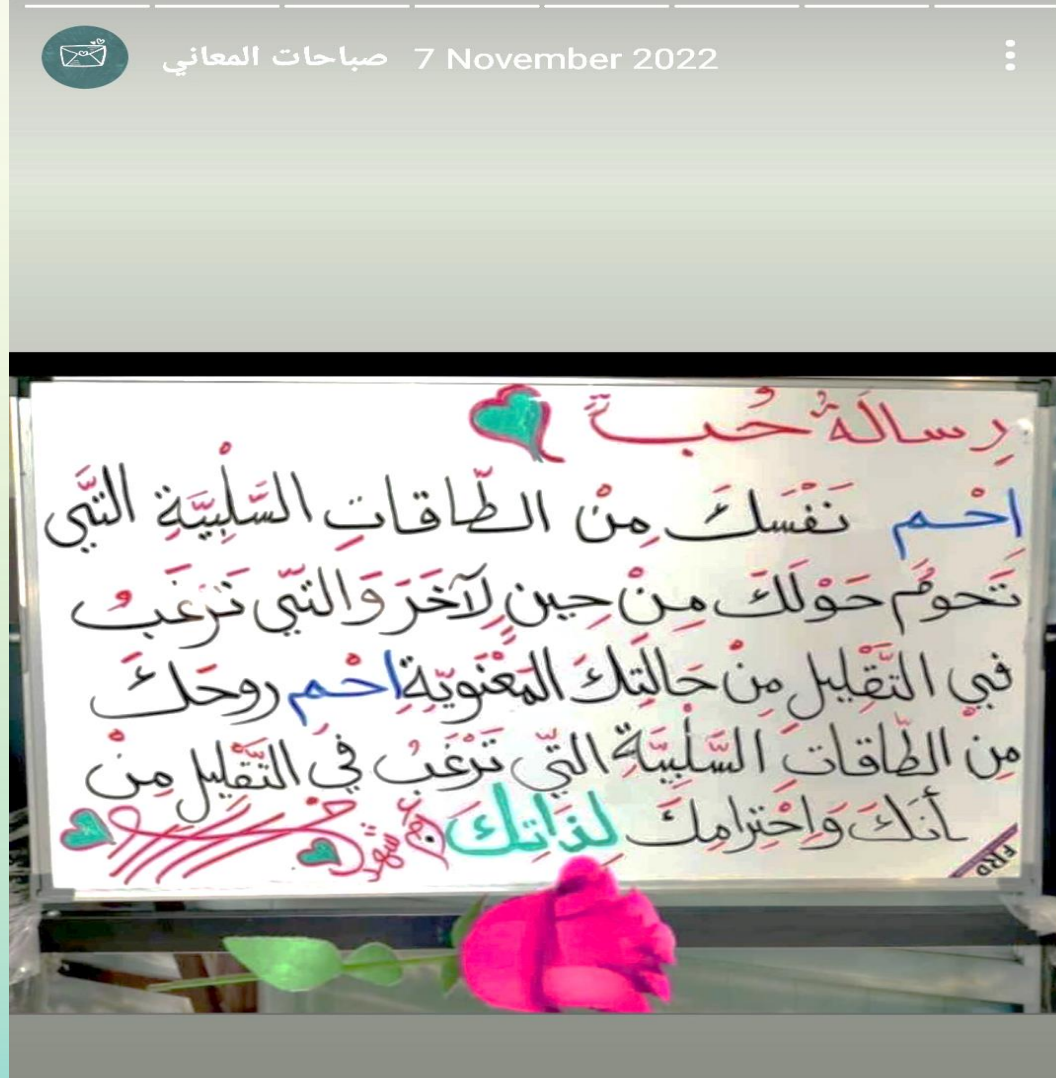 صباحات المعاني 7 November 2022
رِسالَةُ حُبٍّ
احْمِ نَفْسَكَ مِنْ الطّاقاتِ السَّلْبِيَّةِ التّي
تَحومُ حَوْلَكَ مِنْ حِينٍ لِآخَرَ وَالتّي تَرْغَبُ
في التَّقْليلِ مِنْ حَالَتِكَ المَعْنَويّةِ احْمِ روحَكَ
مِنْ الطّاقاتِ السَّلْبِيَّةِ التّي تَرْغَبُ في التَّقْليلِ مِنْ
أَنَكَ وَاِحْتِرامِكَ لِذاتِكَ
FRD